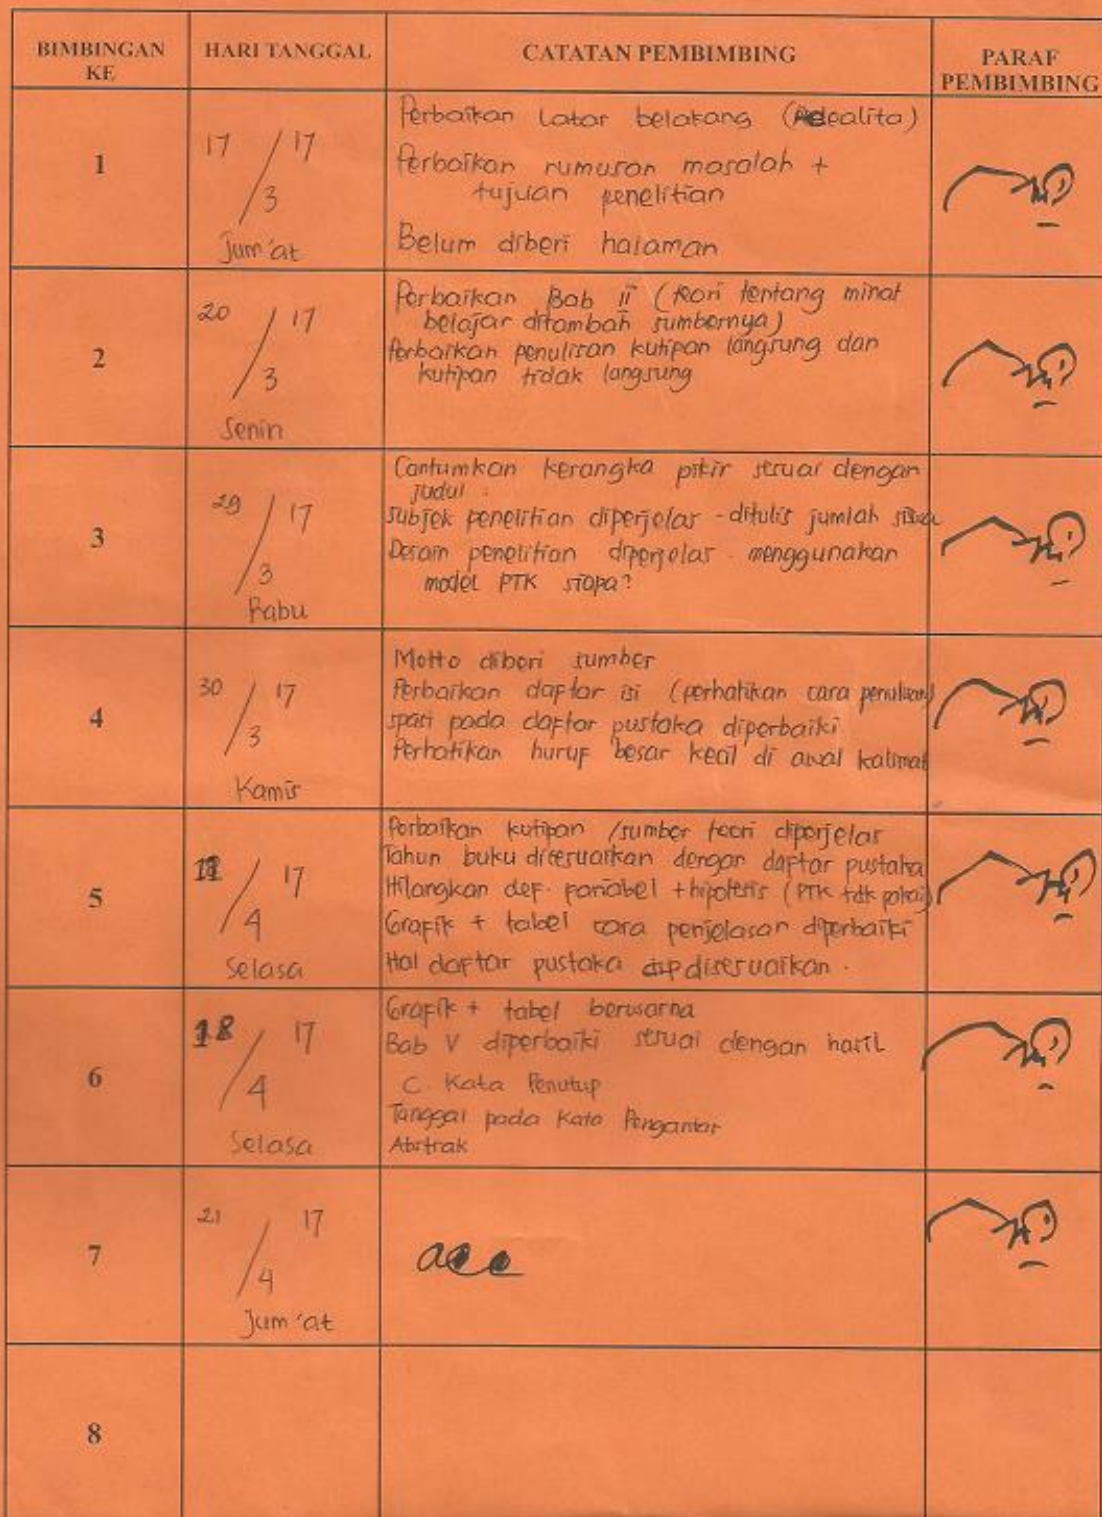 BIMBINGAN KE
HARI TANGGAL
CATATAN PEMBIMBING
PARAF PEMBIMBING
1
17/3 17
Jum'at
Perbaikan Latar belakang
Perbaikan rumusan masalah +
tujuan penelitian
Belum diberi halaman
2
20/3 17
Senin
Perbaikan Bab II (teori tentang minat
belajar ditambah sumbernya)
Perbaikan penulisan kutipan langsung dan
kutipan tidak langsung
3
29/3 17
Rabu
Cantumkan kerangka pikir sesuai dengan
judul
Subjek penelitian diperjelas - ditulis jumlah siswa
Desain penelitian diperjelas menggunakan
model PTK siapa?
4
30/3 17
Kamis
Motto diberi sumber
Perbaikan daftar isi (perhatikan cara penulisan)
spasi pada daftar pustaka diperbaiki
Perhatikan huruf besar kecil di awal kalimat
5
/4 17
Selasa
Perbaikan kutipan /sumber teori diperjelas
Tahun buku disesuaikan dengan daftar pustaka
Hilangkan def. variabel + hipotesis (PTK tdk pakai)
Grafik + tabel cara penjelasan diperbaiki
Hal daftar pustaka disesuaikan.
6
18/4 17
Selasa
Grafik + tabel berwarna
Bab V diperbaiki sesuai dengan hasil
C. Kata Penutup
Tanggal pada Kata Pengantar
Abstrak
7
21/4 17
Jum'at
acc
8